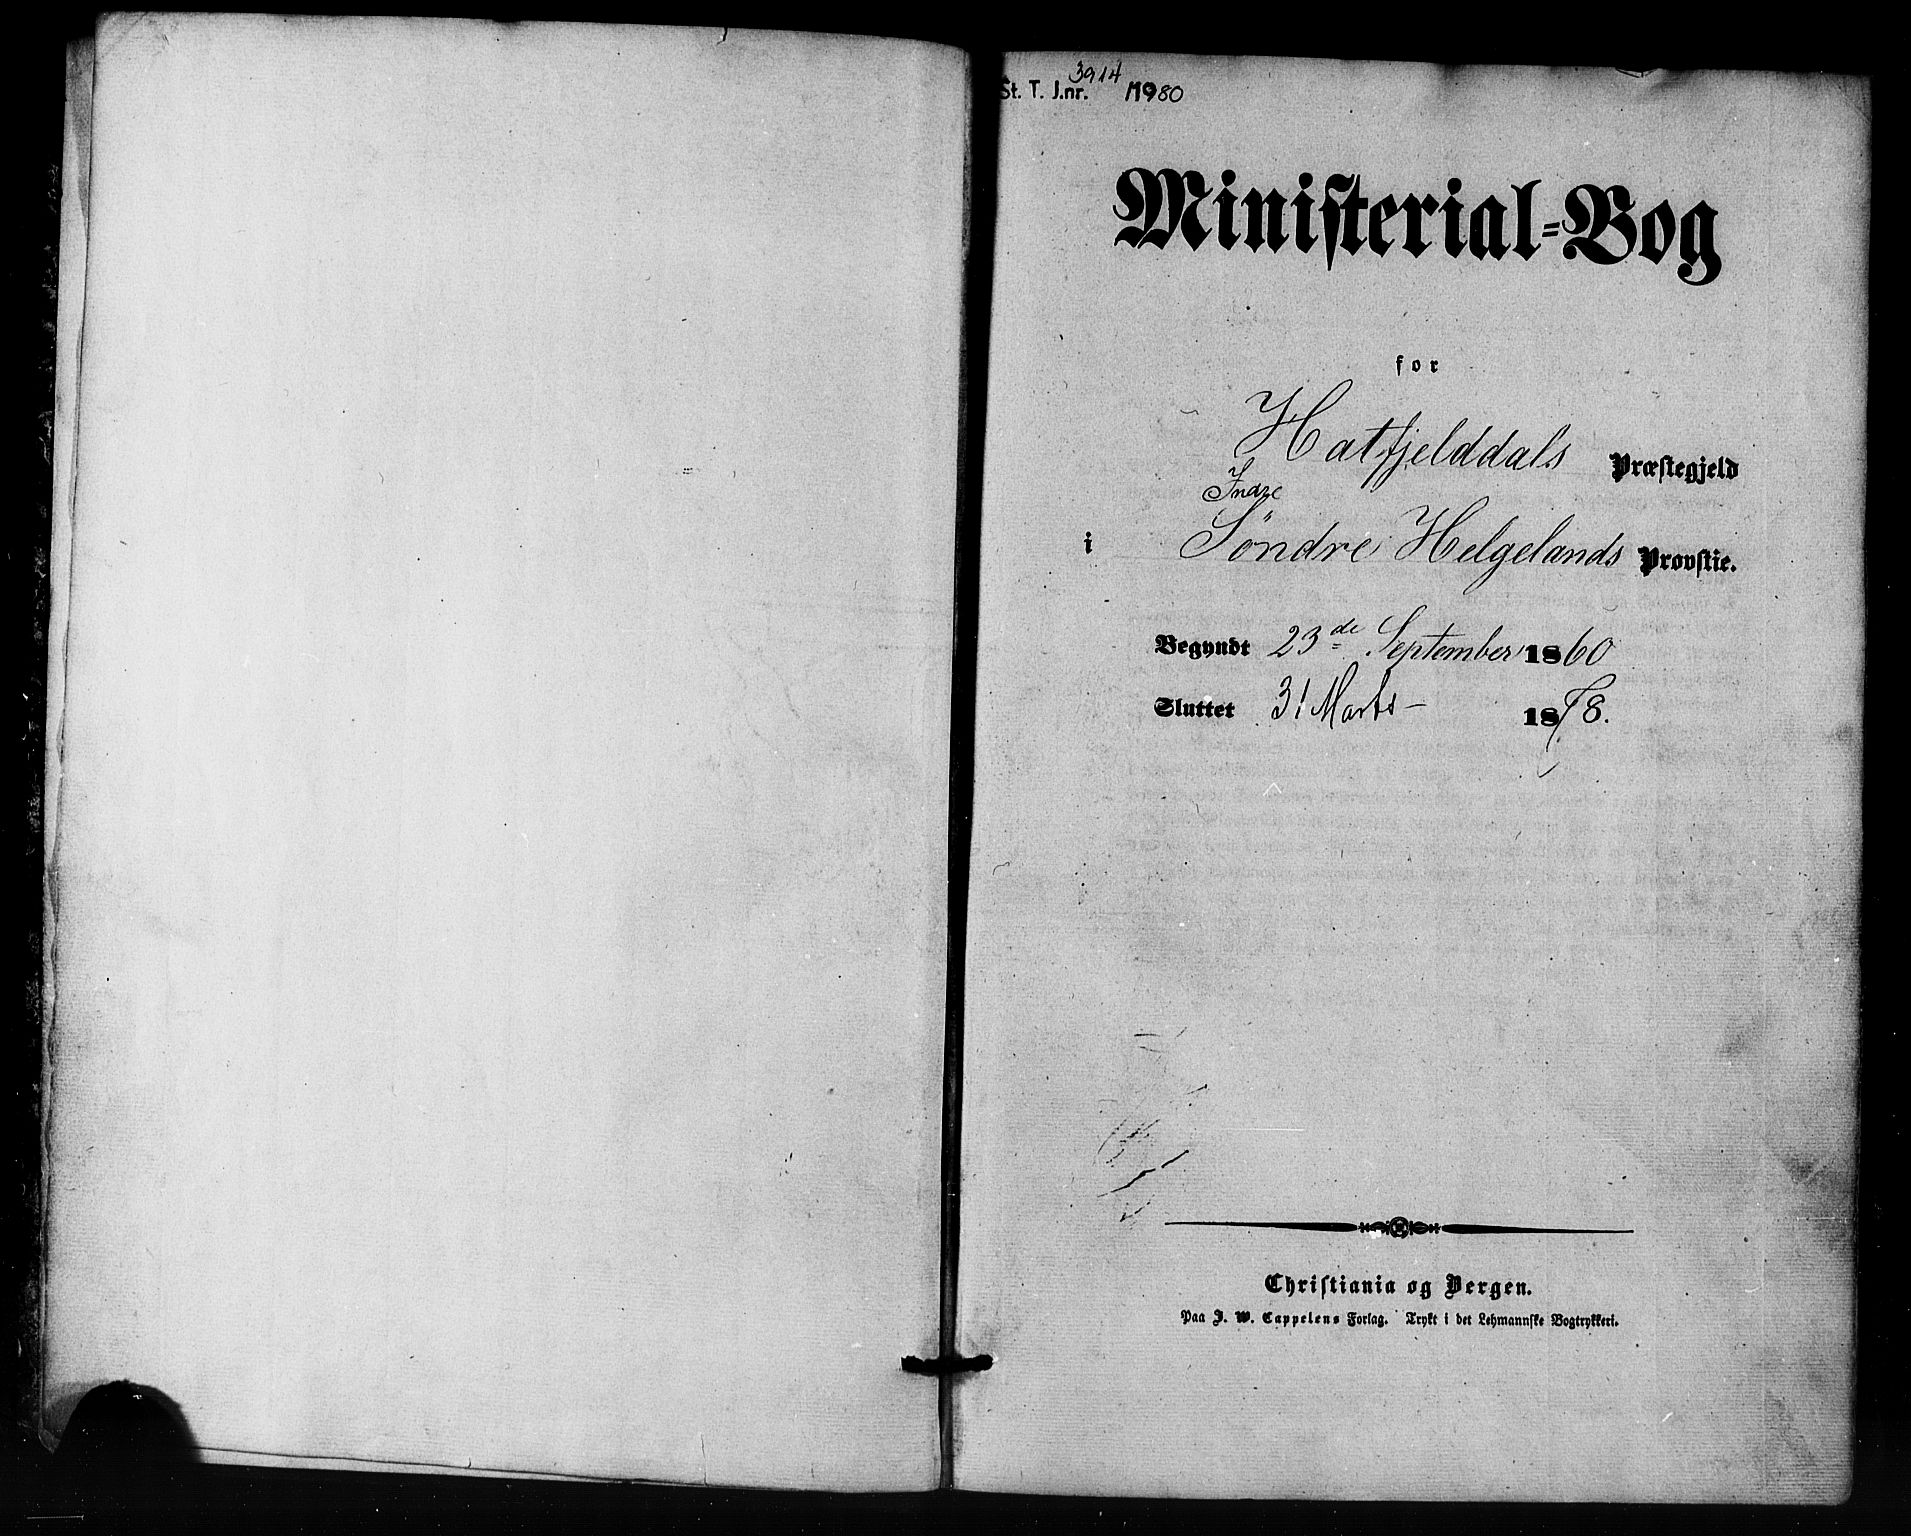 St. T. J.nr. 3914 1980
Ministerial=Bog
for
Hatfjelddals Præstegjeld
Indre
i Söndre Helgelands Provstie.
Begyndt 23de September 1860
Sluttet 31 Marts – 1878.
Christiania og Bergen.
Paa J. W. Cappelens Forlag. Trykt i det Lehmannske Bogtrykkeri.